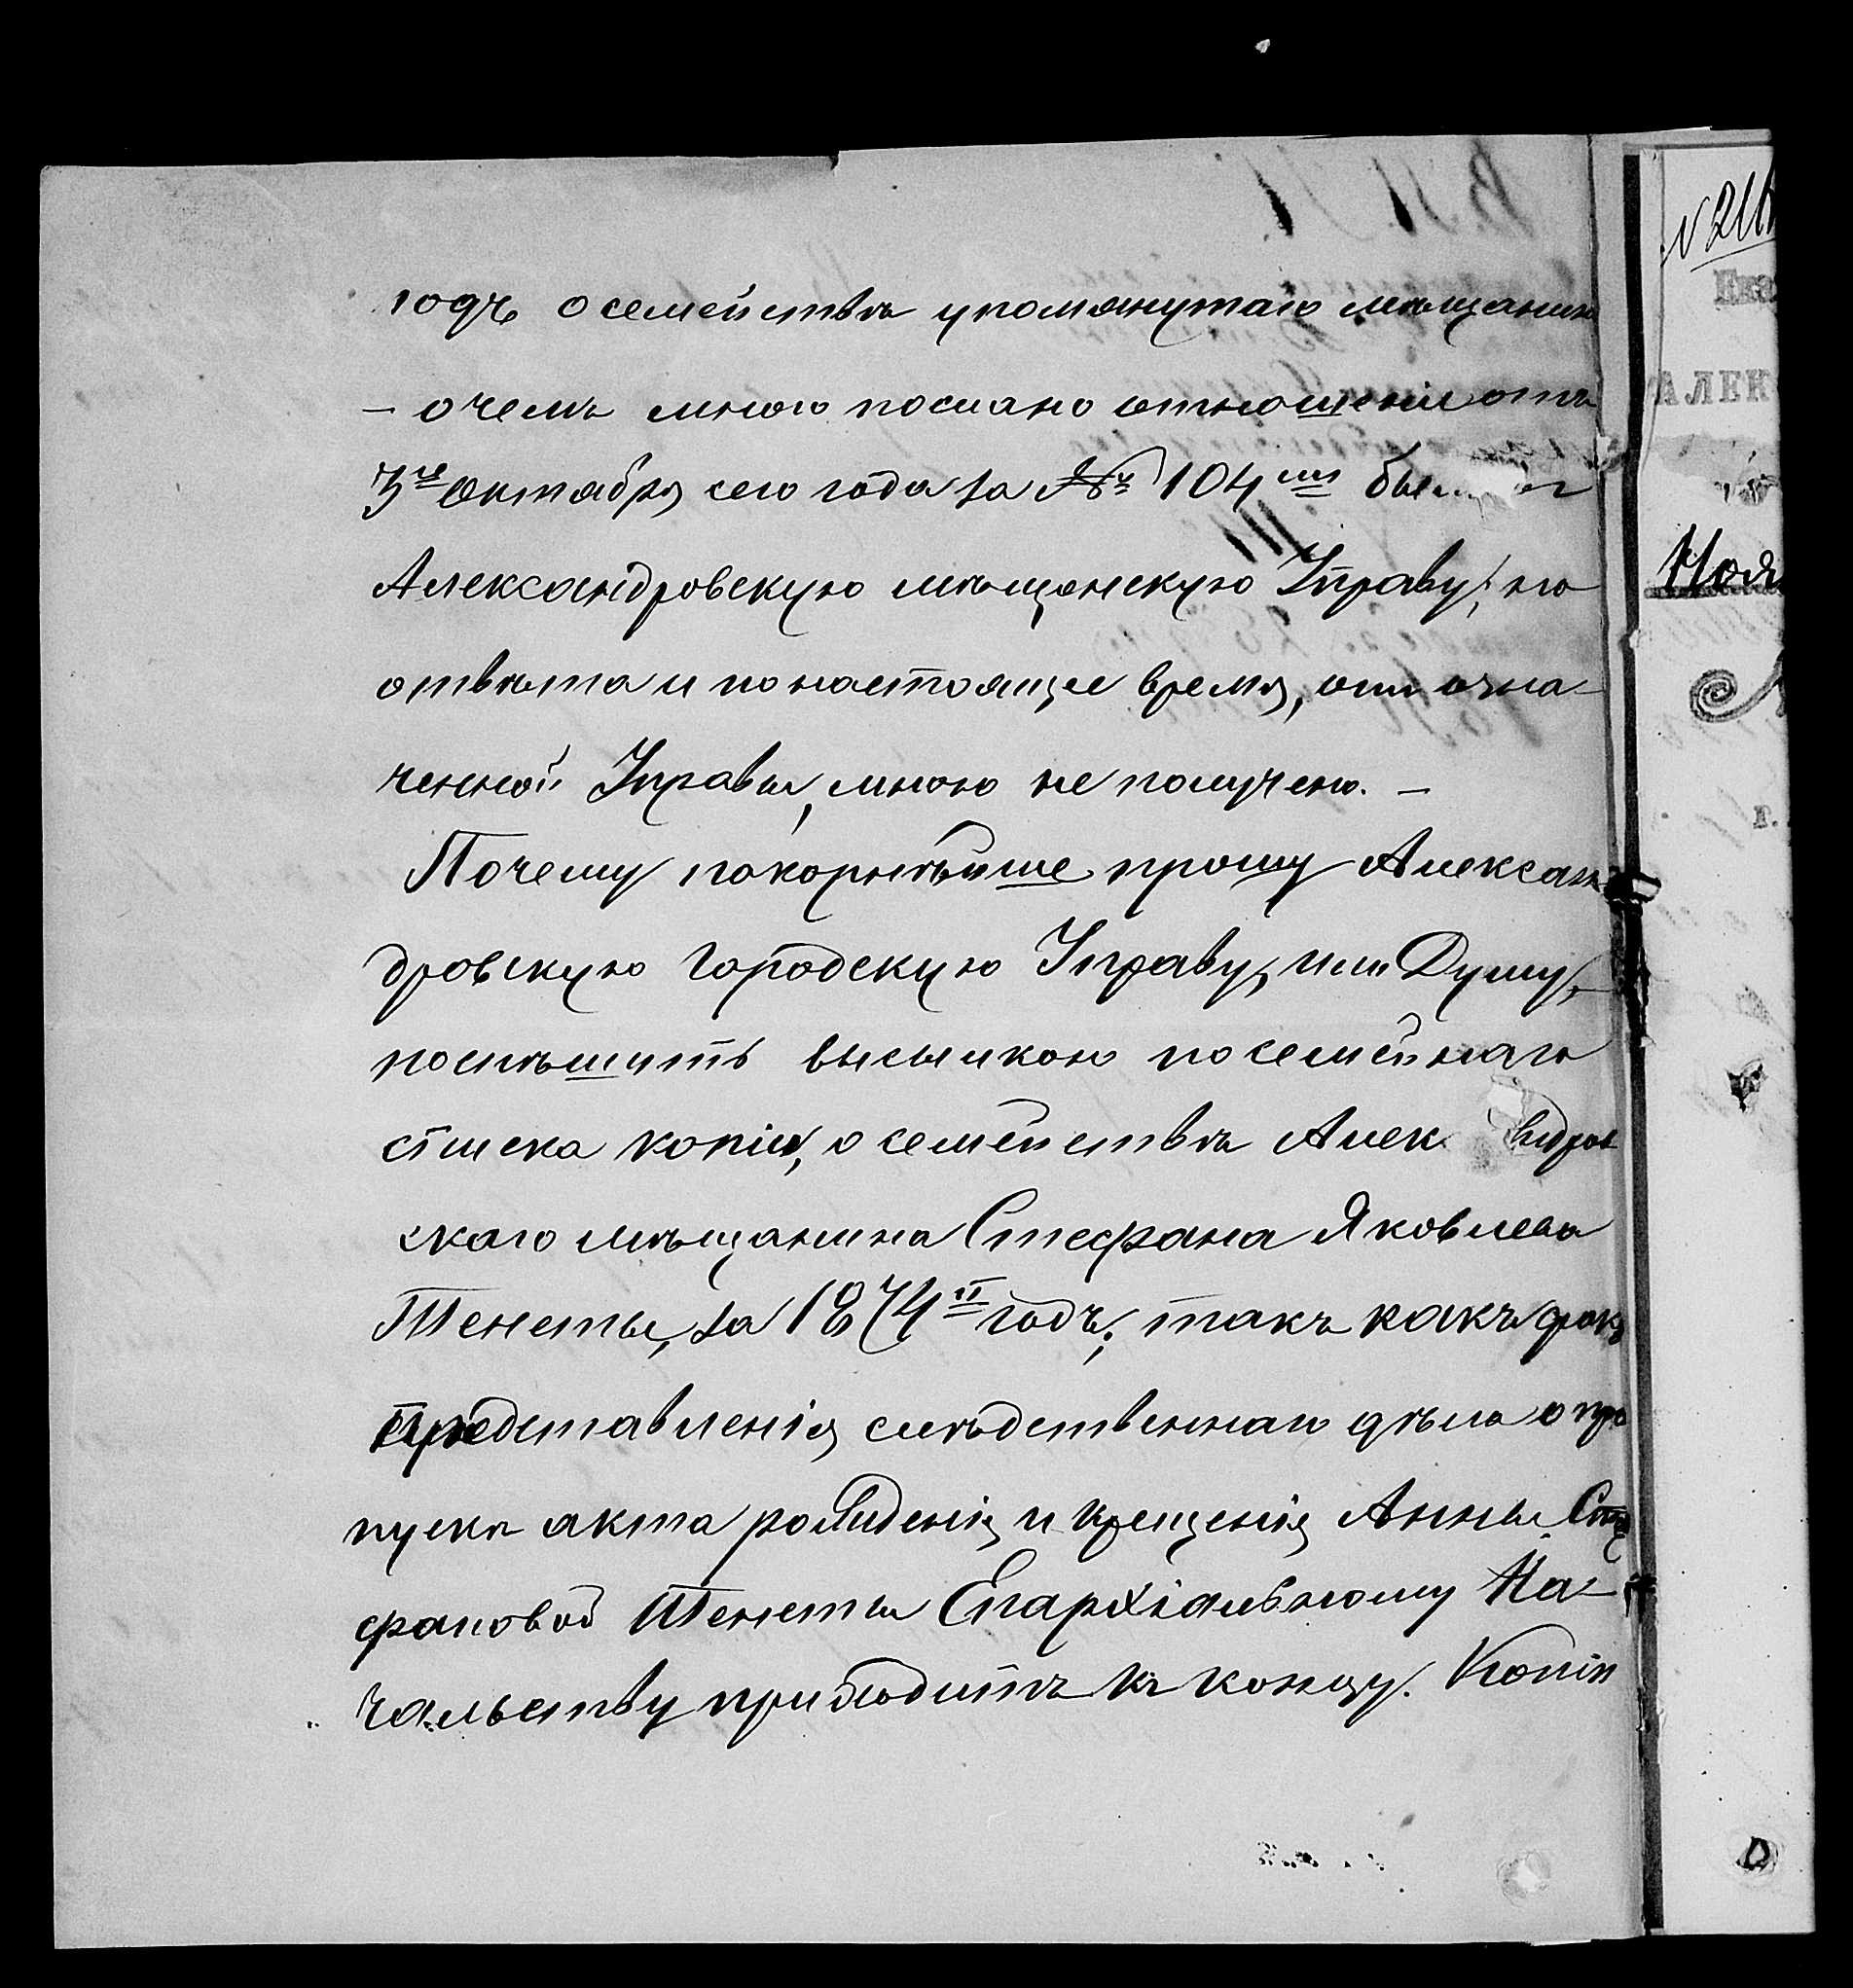 годъ о семействѣ упомянутаго мѣщанина
– о чемъ мною послано отношеніе отъ
3го октября сего года за № 104мъ
Александровскую мѣщанскую Управу; но
отвѣта и по настоящее время, отъ озна-
ченной Управы, мною не получено. –
Почему покорнѣйше прошу Алексан
дровскую Городскую Управу, или Думу,
поспѣшить высылкою посемейнаго
списка копіи, о семействѣ Алек ндров
скаго мѣщанина Стефана Яковлева
Тенеты, за 1874й годъ; такъ какъ срокъ
представленія слѣдственнаго дѣла о про
пускѣ акта рожденія и крещенія Анны Сте
фановой Тенеты Епархіальному На-
чальству приходитъ къ концу. Копія
N 211
Ека
АЛЕК
Ноя
г.